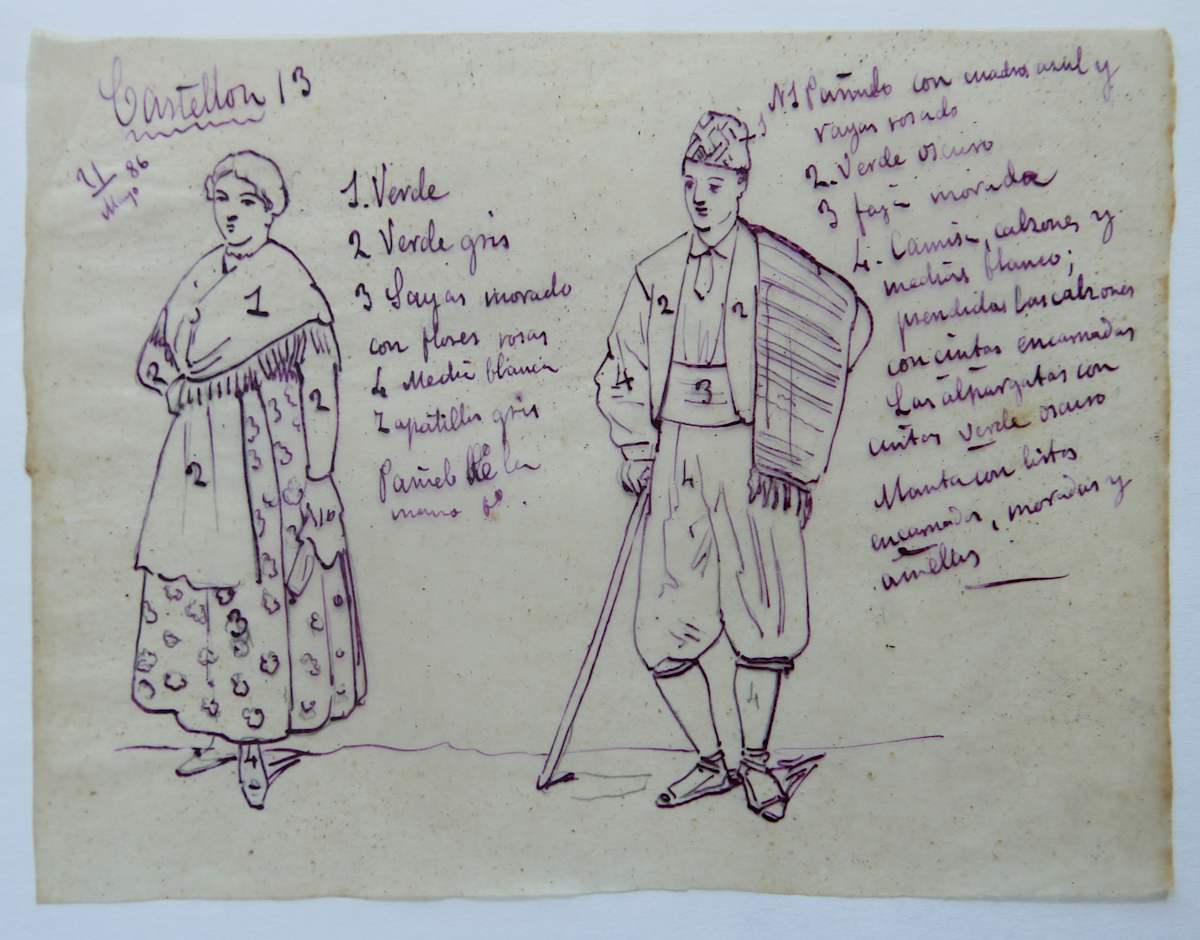 Castellon 13
11
Mayo 86
1. Verde
2 Verde gris
3 Sayas morado
con flores rosas
4 Media blanca
Zapatillas gris
Pañuelo de la
mano
1
2
2
2
3
10
4
Nº1 Pañuelo con cuadros azul y
rayas rosado
2. Verde oscuro
3 faja morada
4. Camisa, calzones y
medias blanco;
prendidas los calzones
con cintas encarnadas
Las alpargatas con
cintas verde oscuro
Manta con listas
encarnadas, moradas y
amarillas
1
2
2
4
3
4
4